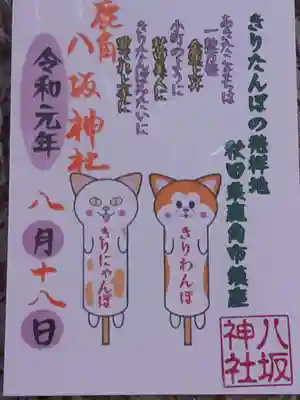 きりたんぽの発祥地
秋田県鹿角市鎮座
あきたこまちは
小町のように
きりたんぽみたいに
鹿角
八坂神社
令和元年
八月十八日
きりわんぽ
きりにゃんぽ
八坂
神社